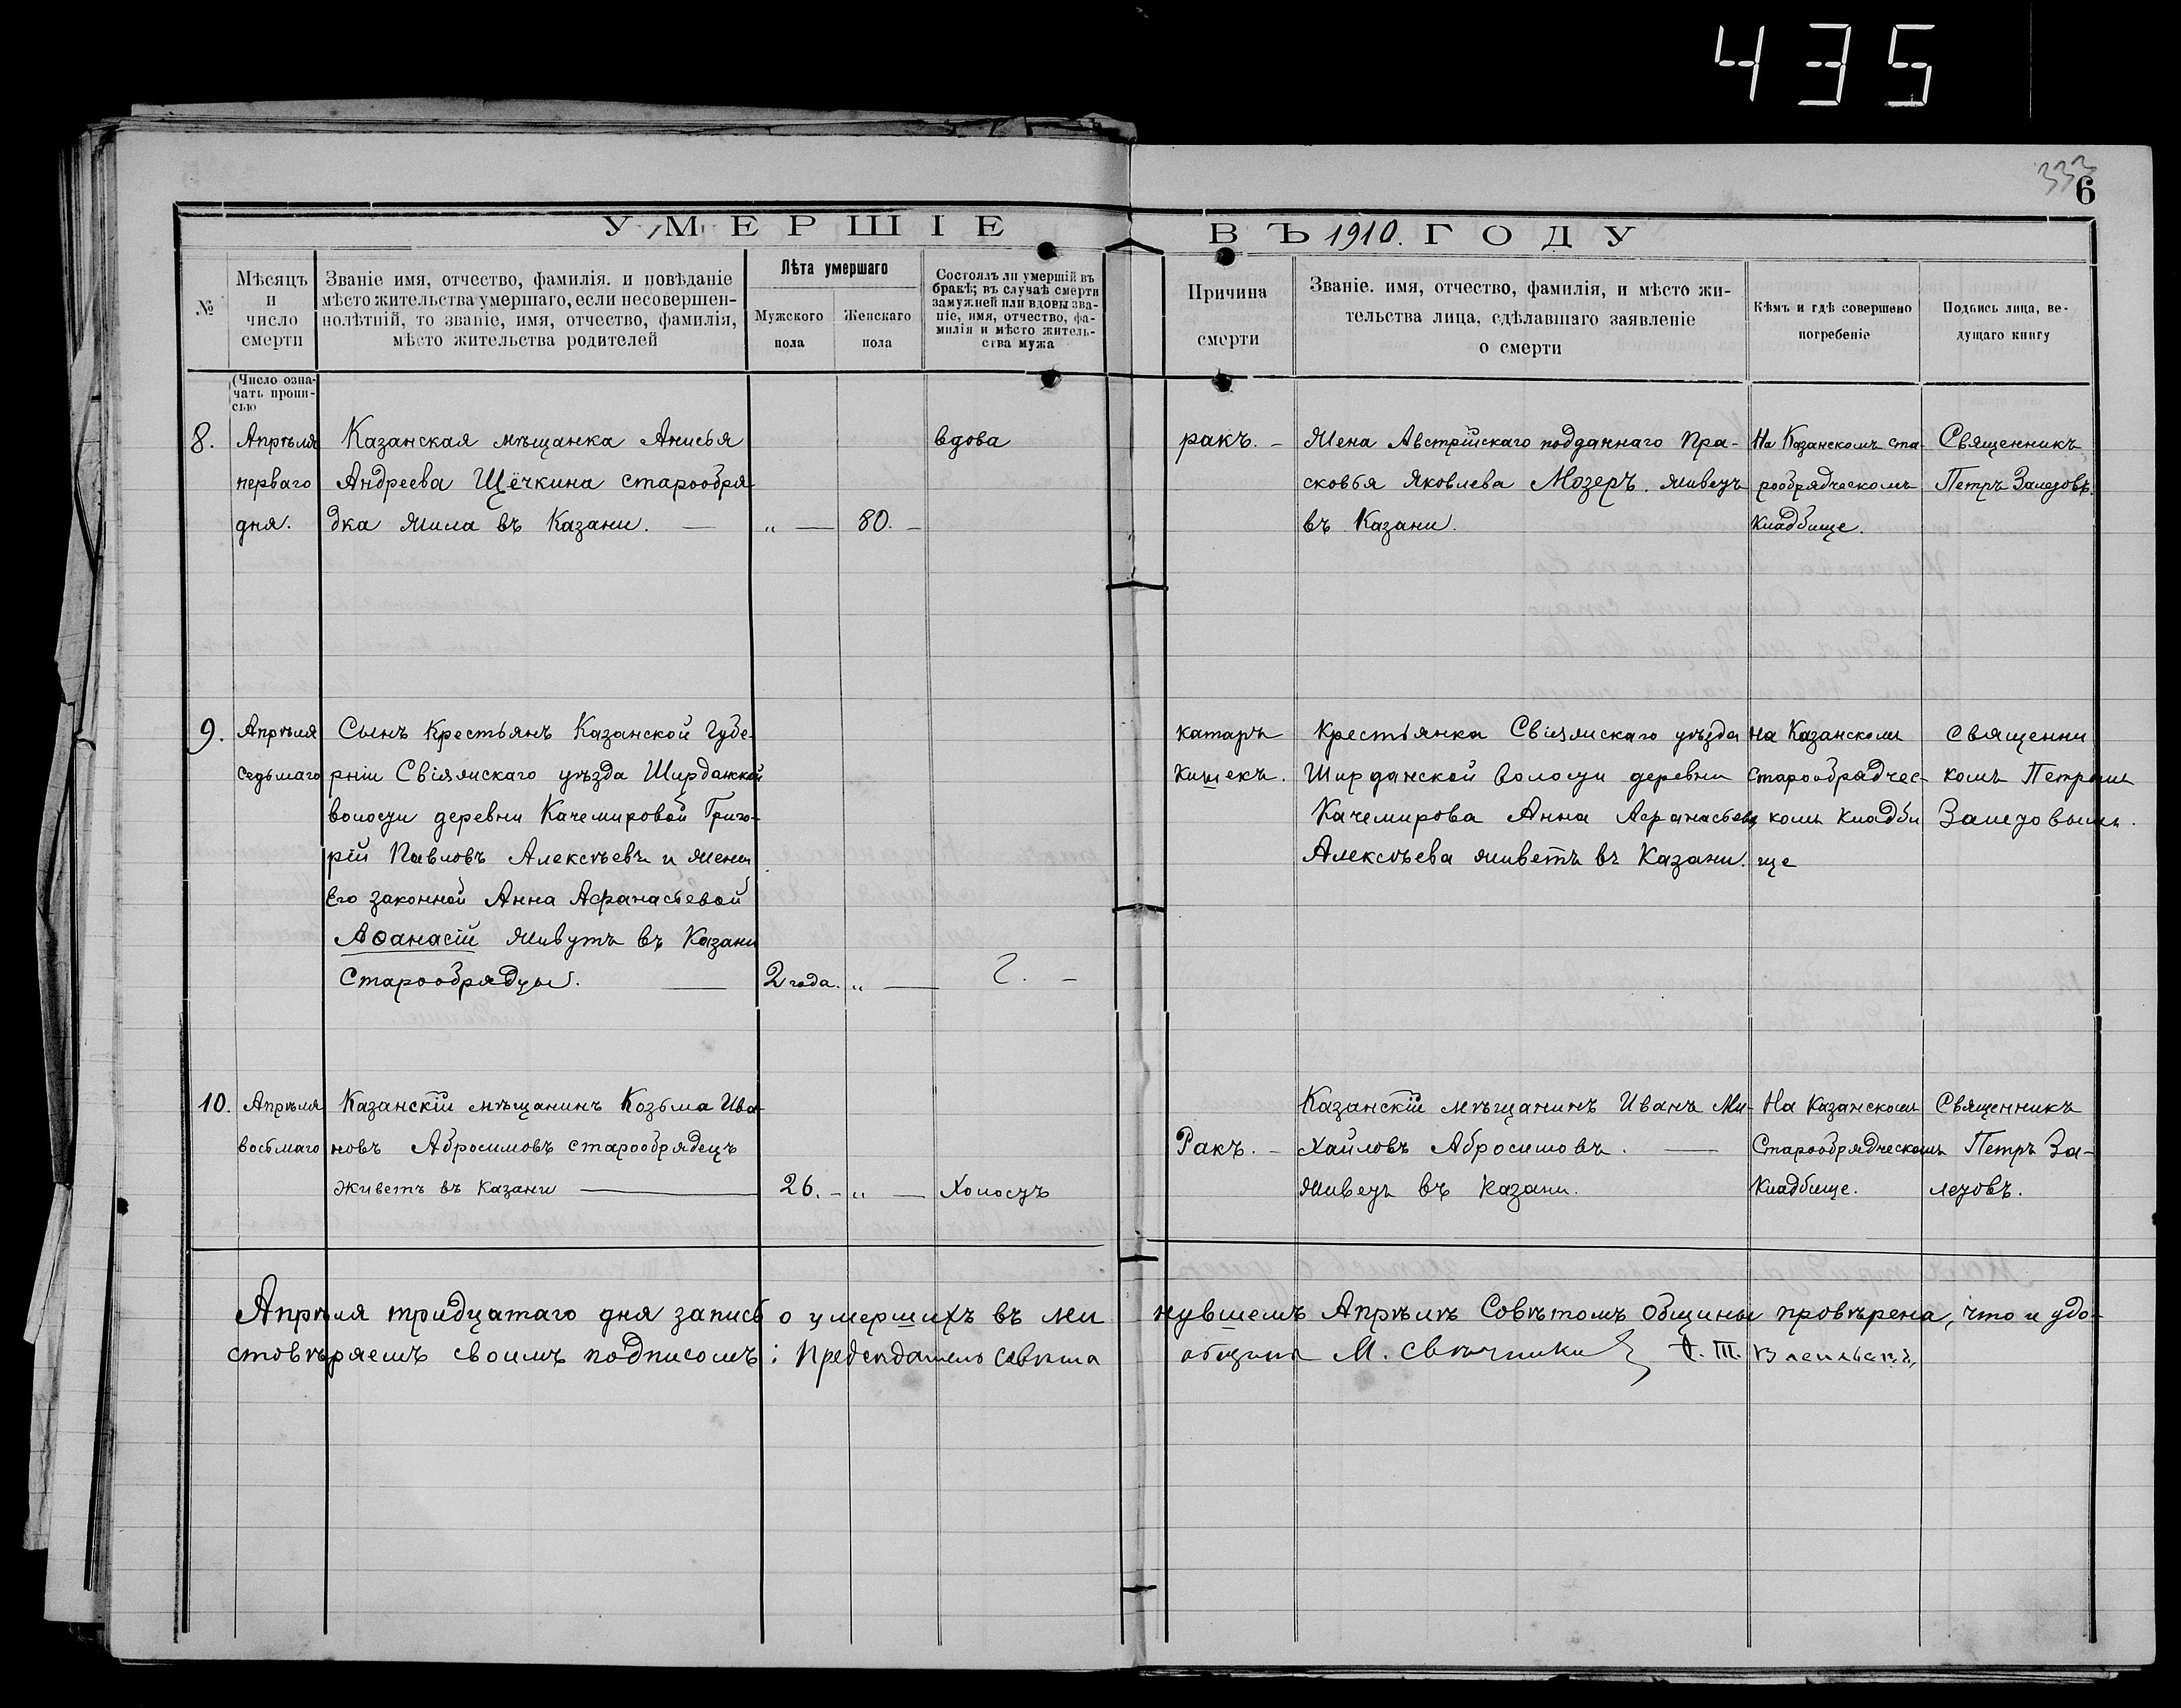 435
333
6
УМЕРШІЕ ВЪ 1910. ГОДУ
№
Мѣсяцъ
и
число
смерти
Званіе имя, отчество, фамилія. и повѣданіе
мѣсто жительства умершаго, если несовершен-
нолѣтній, то званіе, имя, отчество, фамилія,
мѣсто жительства родителей
Лѣта умершаго
Мужского
пола
Женскаго
пола
Состоялъ ли умершій въ
бракѣ; въ случаѣ смерти
замужней или вдовы зва-
ніе, имя, отчество, фа-
милія и мѣсто житель-
ства мужа
Причина
смерти
Званіе. имя, отчество, фамилія, и мѣсто жи-
тельства лица, сдѣлавшаго заявленіе
о смерти
Кѣмъ и гдѣ совершено
погребеніе
Подпись лица, ве-
дущаго книгу
(Число озна-
чать пропи-
сью
8.
Апрѣля
перваго
дня.
Казанская мѣщанка Анисья
Андреева Щёчкина старообря-
дка жила въ Казани. —
„ —
80. –
вдова
ракъ. –
Жена Австрійскаго подданнаго Пра-
сковья Яковлева Мозеръ. живетъ
въ Казани.
На Казанскомъ ста-
рообрядческомъ
кладбище.
Священникъ
Петръ Залетовъ.
9.
Апрѣля
седьмаго
Сынъ Крестьянъ Казанской Губе-
рніи Свіяжскаго уѣзда Ширданской
волости деревни Качемировой Григо-
рій Павловъ Алексѣевъ и жены
Его законной Анна Афанасьевой
Аѳанасій живутъ въ Казани
Старообрядцы. —
2 года.
„ —
катаръ
кишекъ.
Крестьянка Свіяжскаго уѣзда
Ширданской волости деревни
Качемирова Анна Афанасьева
Алексѣева живетъ въ Казани.
на Казанскомъ
старообрядчес-
комъ кладби
ще
священни
комъ Петромъ
Залетовымъ.
10.
Апрѣля
восьмаго
Казанскій мѣщанинъ Козьма Ива-
новъ Абросимовъ старообрядецъ
живетъ въ Казани —
26. –
„ —
Холостъ
Ракъ. –
Казанскій мѣщанинъ Иванъ Ми-
хайловъ Абросимовъ. —
живетъ въ Казани.
На Казанскомъ
Старообрядческомъ
кладбище.
Священникъ
Петръ За-
летовъ.
Апрѣля тридцатаго дня запись о умершихъ въ ми
нувшемъ Апрѣлѣ Совѣтомъ Общины провѣрена, что и удо-
стовѣряемъ своимъ подписомъ: Председатель совѣта
общины М. Свѣчник